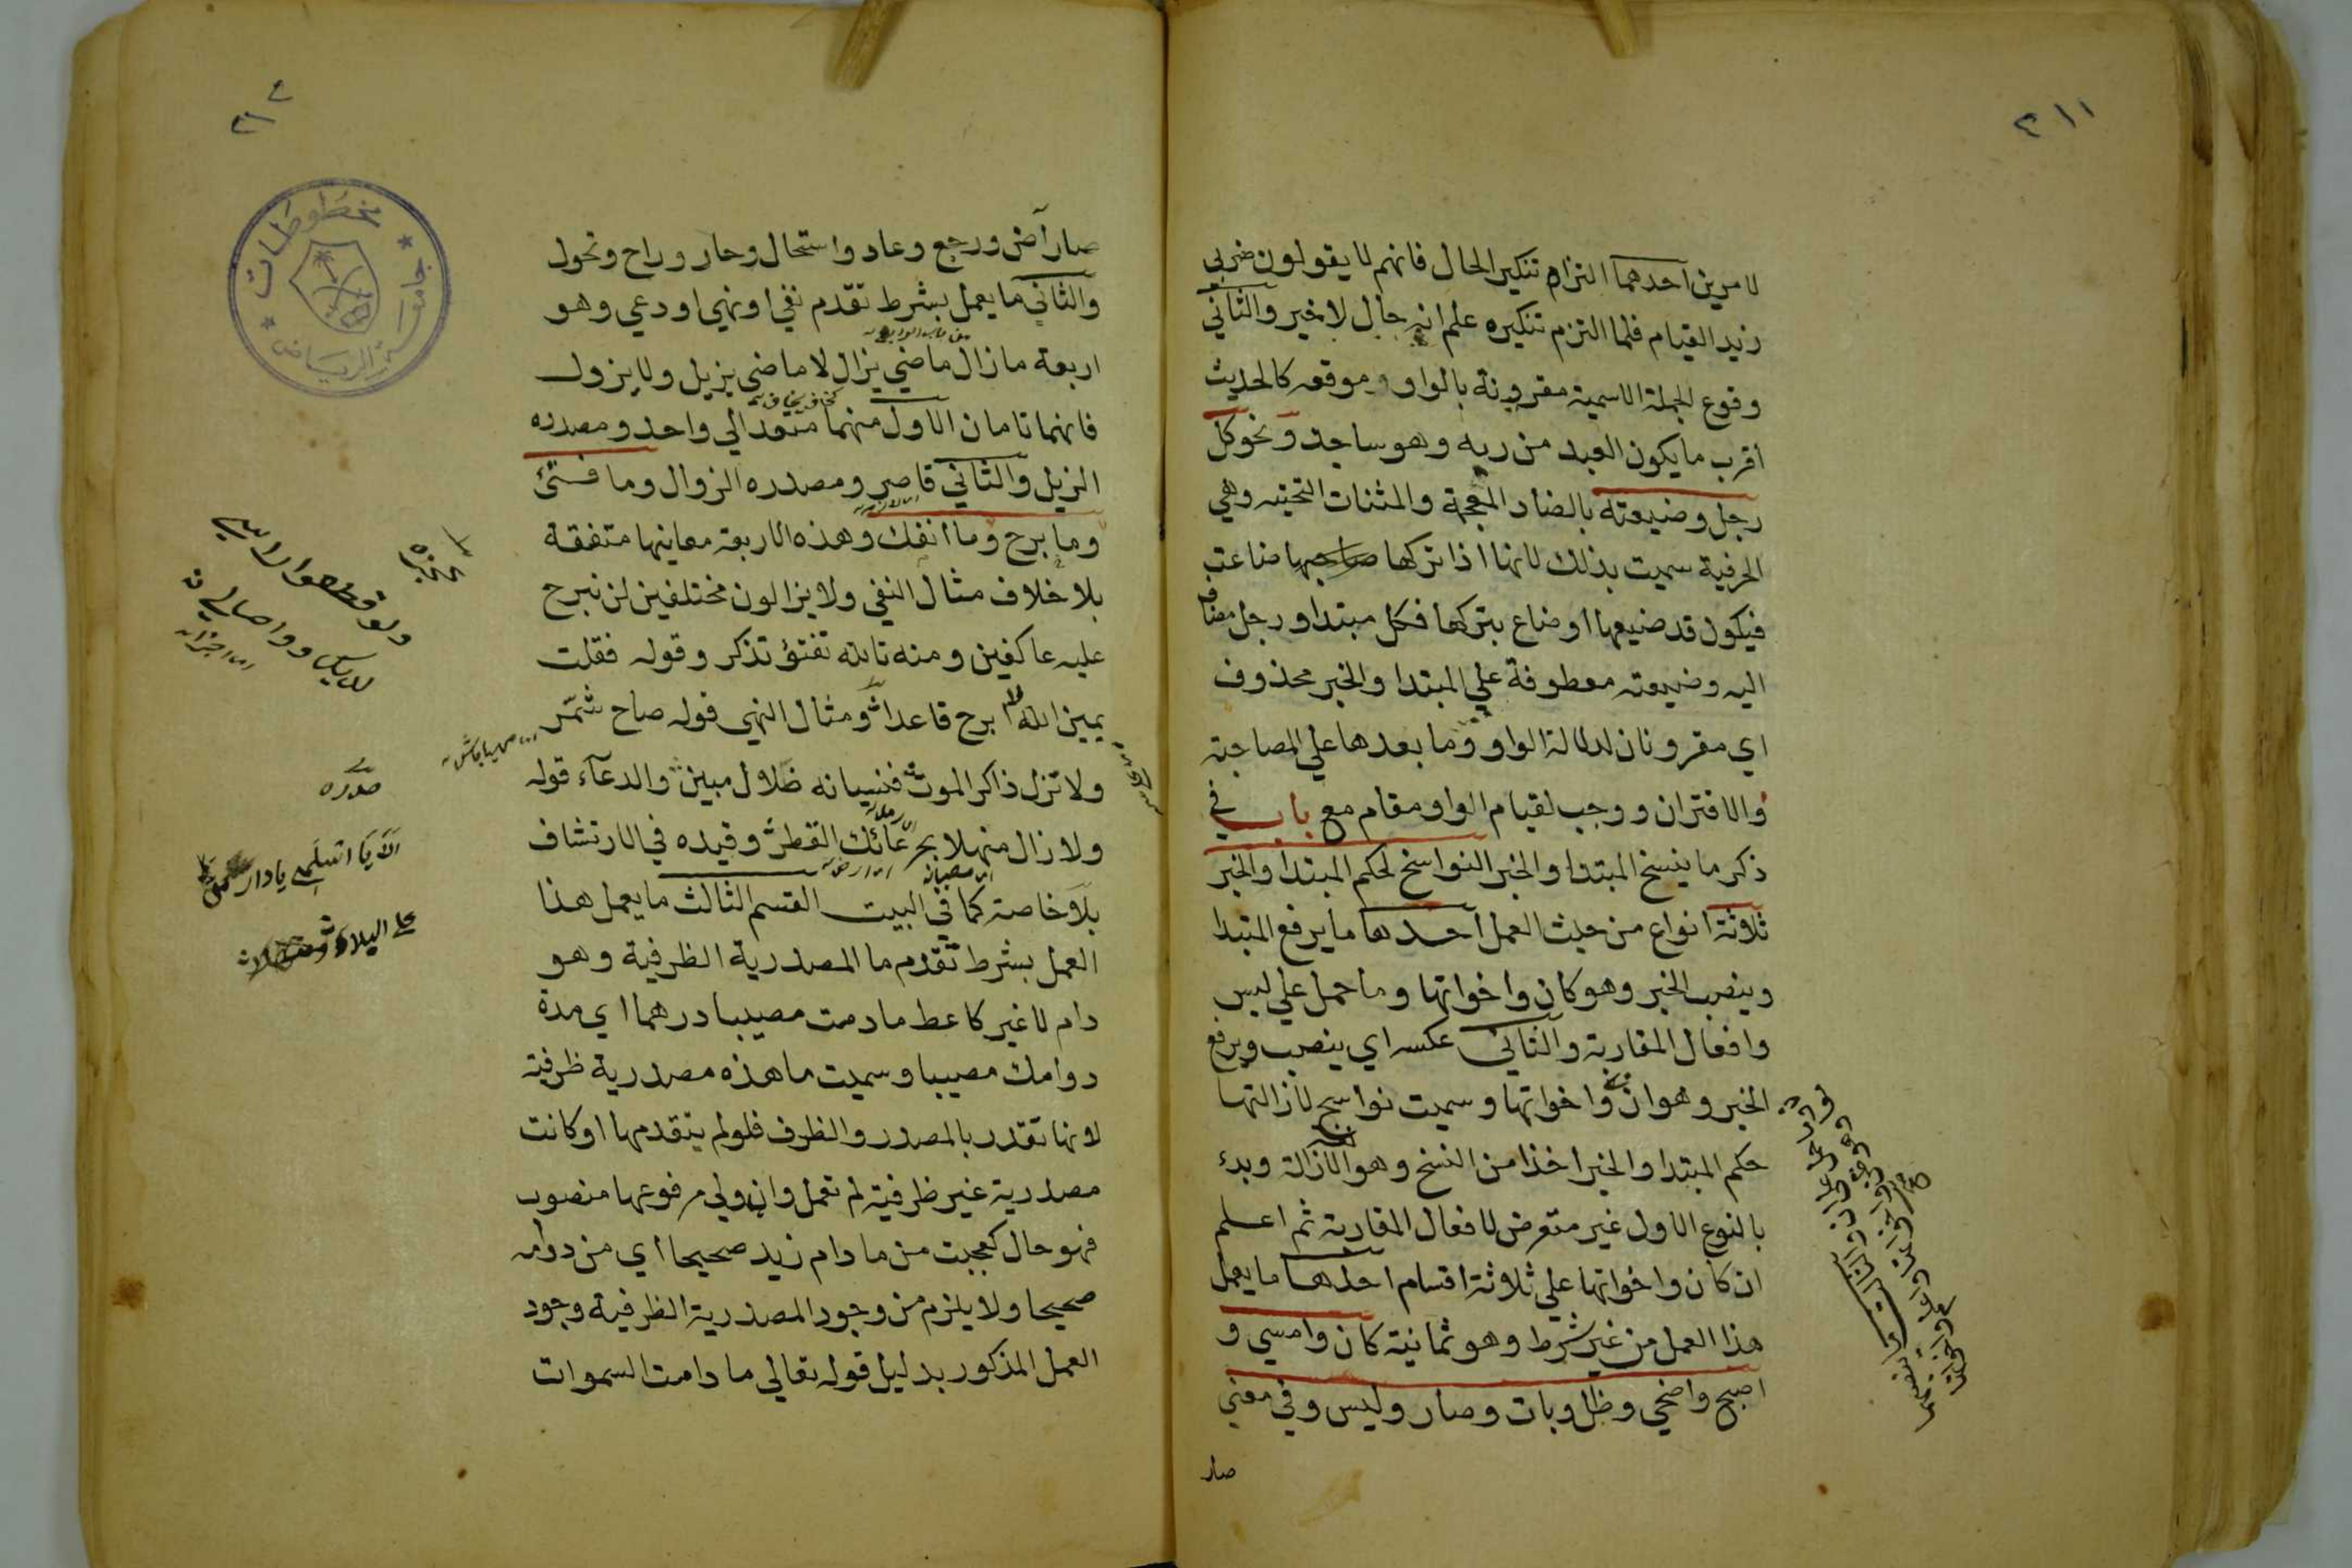 ٢١١
لامرين احدهما التزام تنكير الحال فانهم لا يقولون ضربي
زيد القيام فلما التزم تنكيره علم انه حال لا خبر والثاني
وقوع الجملة الاسمية مقرونة بالواو موقعه كالحديث
اقرب ما يكون العبد من ربه وهو ساجد ونحو كل
رجل وضيعته بالضاد المعجمة والمثنات التحتيه وهي
الحرفية سميت بذلك لانها اذا تركها صاحبها ضاعت
فيكون قد ضيعها او ضاع بتركها فكل مبتدا ورجل مضاف
اليه وضيعته معطوفة علي المبتدا والخبر محذوف
اي مقرونان لدلالة الواو وما بعدها علي المصاحبة
والاقتران ووجب لقيام الواو مقام مع باب في
ذكر ما ينسخ المبتدا والخبر النواسخ لحكم المبتدا والخبر
ثلاثة انواع من حيث العمل احدها ما يرفع المبتدا
وينصب الخبر وهو كان واخواتها وما حمل علي ليس
وافعال المقاربة والثاني عكسه اي ينصب ويرفع
الخبر وهو ان واخواتها وسميت نواسخ لازالتها
حكم المبتدا والخبر اخذا من النسخ وهو الازالة وبدء
بالنوع الاول غير متعرض لافعال المقاربة ثم اعلم
ان كان واخواتها علي ثلاثة اقسام احدها ما يعمل
هذا العمل من غير شرط وهو ثمانية كان وامسي و
اصبح واضحي وظل وبات وصار وليس وفي معني
صار
صار آض ورجع وعاد واستحال وحار وراح وتحول
والثاني ما يعمل بشرط تقدم نفي او نهي او دعي وهو
اربعة ما زال ماضي يزال لا ماضي يزيل ولا يزول
فانهما تامان الاول منهما متعد الي واحد ومصدره
الزيل والثاني قاصر ومصدره الزوال وما فتئ
وما برح وما انفك وهذه الاربعة معانيها متفقة
بلا خلاف مثال النفي ولا يزالون مختلفين لن نبرح
عليه عاكفين ومنه تالله تفتؤ تذكر وقوله فقلت
يمين الله لا ابرح قاعدا ومثال النهي قوله صاح شمّر
ولا تزل ذاكر الموت فنسيانه ضلال مبين والدعآء قوله
ولا زال منهلا بجرعائك القطر وقيده في الارتشاف
بلا خاصة كما في البيت القسم الثالث ما يعمل هذا
العمل بشرط تقدم ما المصدرية الظرفية وهو
دام لا غير كاعط ما دمت مصيبا درهما اي مدة
دوامك مصيبا وسميت ما هذه مصدرية ظرفية
لانها تقدر بالمصدر والظرف فلو لم يتقدمها او كانت
مصدرية غير ظرفية لم تعمل وان ولي مرفوعها منصوب
فهو حال كعجبت من ما دام زيد صحيحا اي من دوامه
صحيحا ولا يلزم من وجود المصدرية الظرفية وجود
العمل المذكور بدليل قوله تعالي ما دامت السموات
عجزه
ولو قطعوا راسي
لديك واوصالي
صدره
الا يا اسلمي يا دار مي
علي البلا
مخطوطات
جامعة الرياض